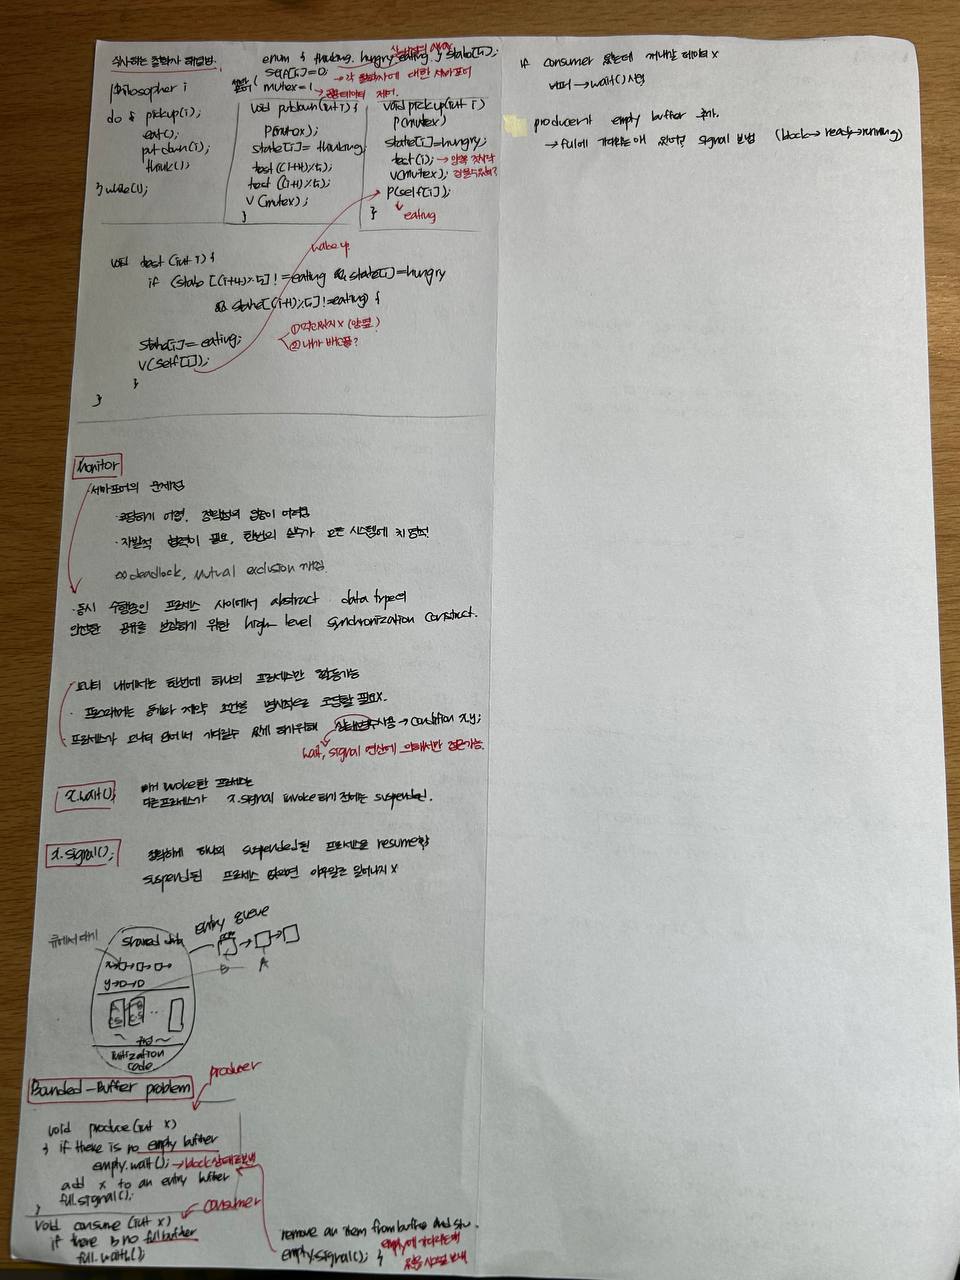 식사하는 철학자 해결법.
enum { thinking, hungry, eating } state[5];
상태의 array
self[5]=0; → 각 철학자에 대한 세마포어
mutex=1 → 공유데이터 제어.
philosopher i
do { pickup(i);
eat();
putdown(i);
think();
} while(1);
void putdown(int i) {
P(mutex);
state[i]= thinking;
test((i+4)%5);
test((i+1)%5);
V(mutex);
}
void pickup(int i)
P(mutex)
state[i]=hungry;
test(i); → 양쪽 젓가락
V(mutex);
P(self[i]);
}
eating
wake up
void test(int i) {
if (state[(i+4)%5]!=eating && state[i]=hungry
&& state[(i+1)%5]!=eating) {
state[i]= eating;
V(self[i]);
}
}
① 먹는지 X (양옆)
② 내가 배고픔?
Monitor
세마포어의 문제점
· 코딩하기 어렵, 정확성의 입증이 어려움
· 자발적 협력이 필요, 한번의 실수가 모든 시스템에 치명적
ex) deadlock, mutual exclusion 깨짐.
· 동시 수행중인 프로세스 사이에서 abstract data type의
안전한 공유를 보장하기 위한 high-level synchronization construct.
모니터 내에서는 한번에 하나의 프로세스만 활동가능
· 프로그래머는 동기화 제약 조건을 명시적으로 코딩할 필요X.
프로세스가 모니터 안에서 기다릴수 있게 하기위해 상태변수사용 → condition x,y;
wait, signal 연산에 의해서만 접근가능.
x.wait();
invoke한 프로세스는
다른프로세스가 x.signal invoke하기 전에는 suspended.
x.signal();
정확하게 하나의 suspended된 프로세스를 resume함
suspend된 프로세스 없으면 아무일도 일어나지 X
큐에서대기
shared data
entry queue
x→□→□→□
y→□→□
B
A
initialization
code
Bounded-Buffer problem
producer
void produce(int x)
{ if there is no empty buffer
empty.wait(); → block상태로보냄
add x to an empty buffer
full.signal();
}
consumer
void consume(int x)
if there is no full buffer
full.wait();
remove an item from buffer and store.
empty.signal(); }
empty에 기다리는애
있음 시그널 보내
if consumer 왔는데 꺼내갈 데이터 X
버퍼 → wait() 시킴
producer가 empty buffer 추가.
→ full에 기다리는 애 있어? signal 보냄 (block→ready→running)